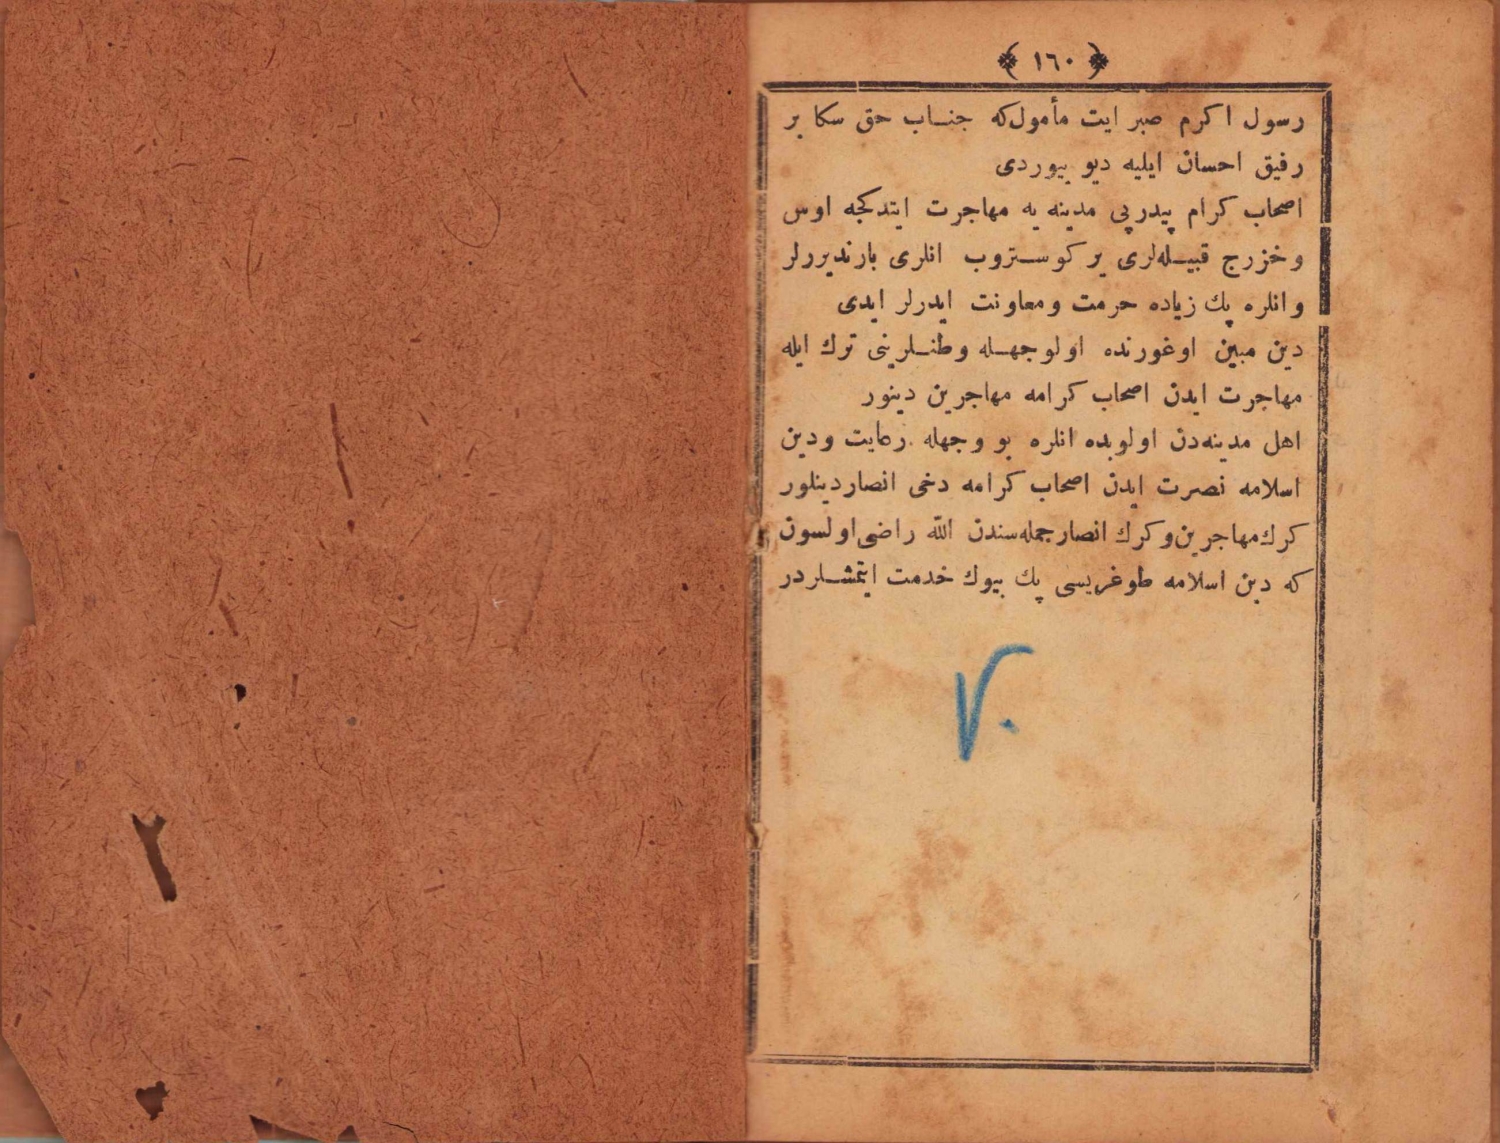 ﴿ ١٦٠ ﴾
رسول اكرم صبر ايت مأمولكه جنـاب حق سكا بر
رفيق احسان ايليه ديو بيوردى
اصحاب كرام پيدرپى مدينه يه مهاجرت ايتدكجه اوس
وخزرج قبيـله‌لرى ير كوسـتروب انلرى بارنديررلر
وانلره پك زياده حرمت ومعاونت ايدرلر ايدى
دين مبين اوغورنده اولوجهـله وطنـلرينى ترك ايله
مهاجرت ايدن اصحاب كرامه مهاجرين دينور
اهل مدينه‌دن اولوبده انلره بو وجهله رعايت ودين
اسلامه نصرت ايدن اصحاب كرامه دخى انصار دينلور
كرك مهاجرين وكرك انصار جمله‌سندن الله راضى اولسون
كه دين اسلامه طوغريسى پك بيوك خدمت ايتمشـلردر
٧٠